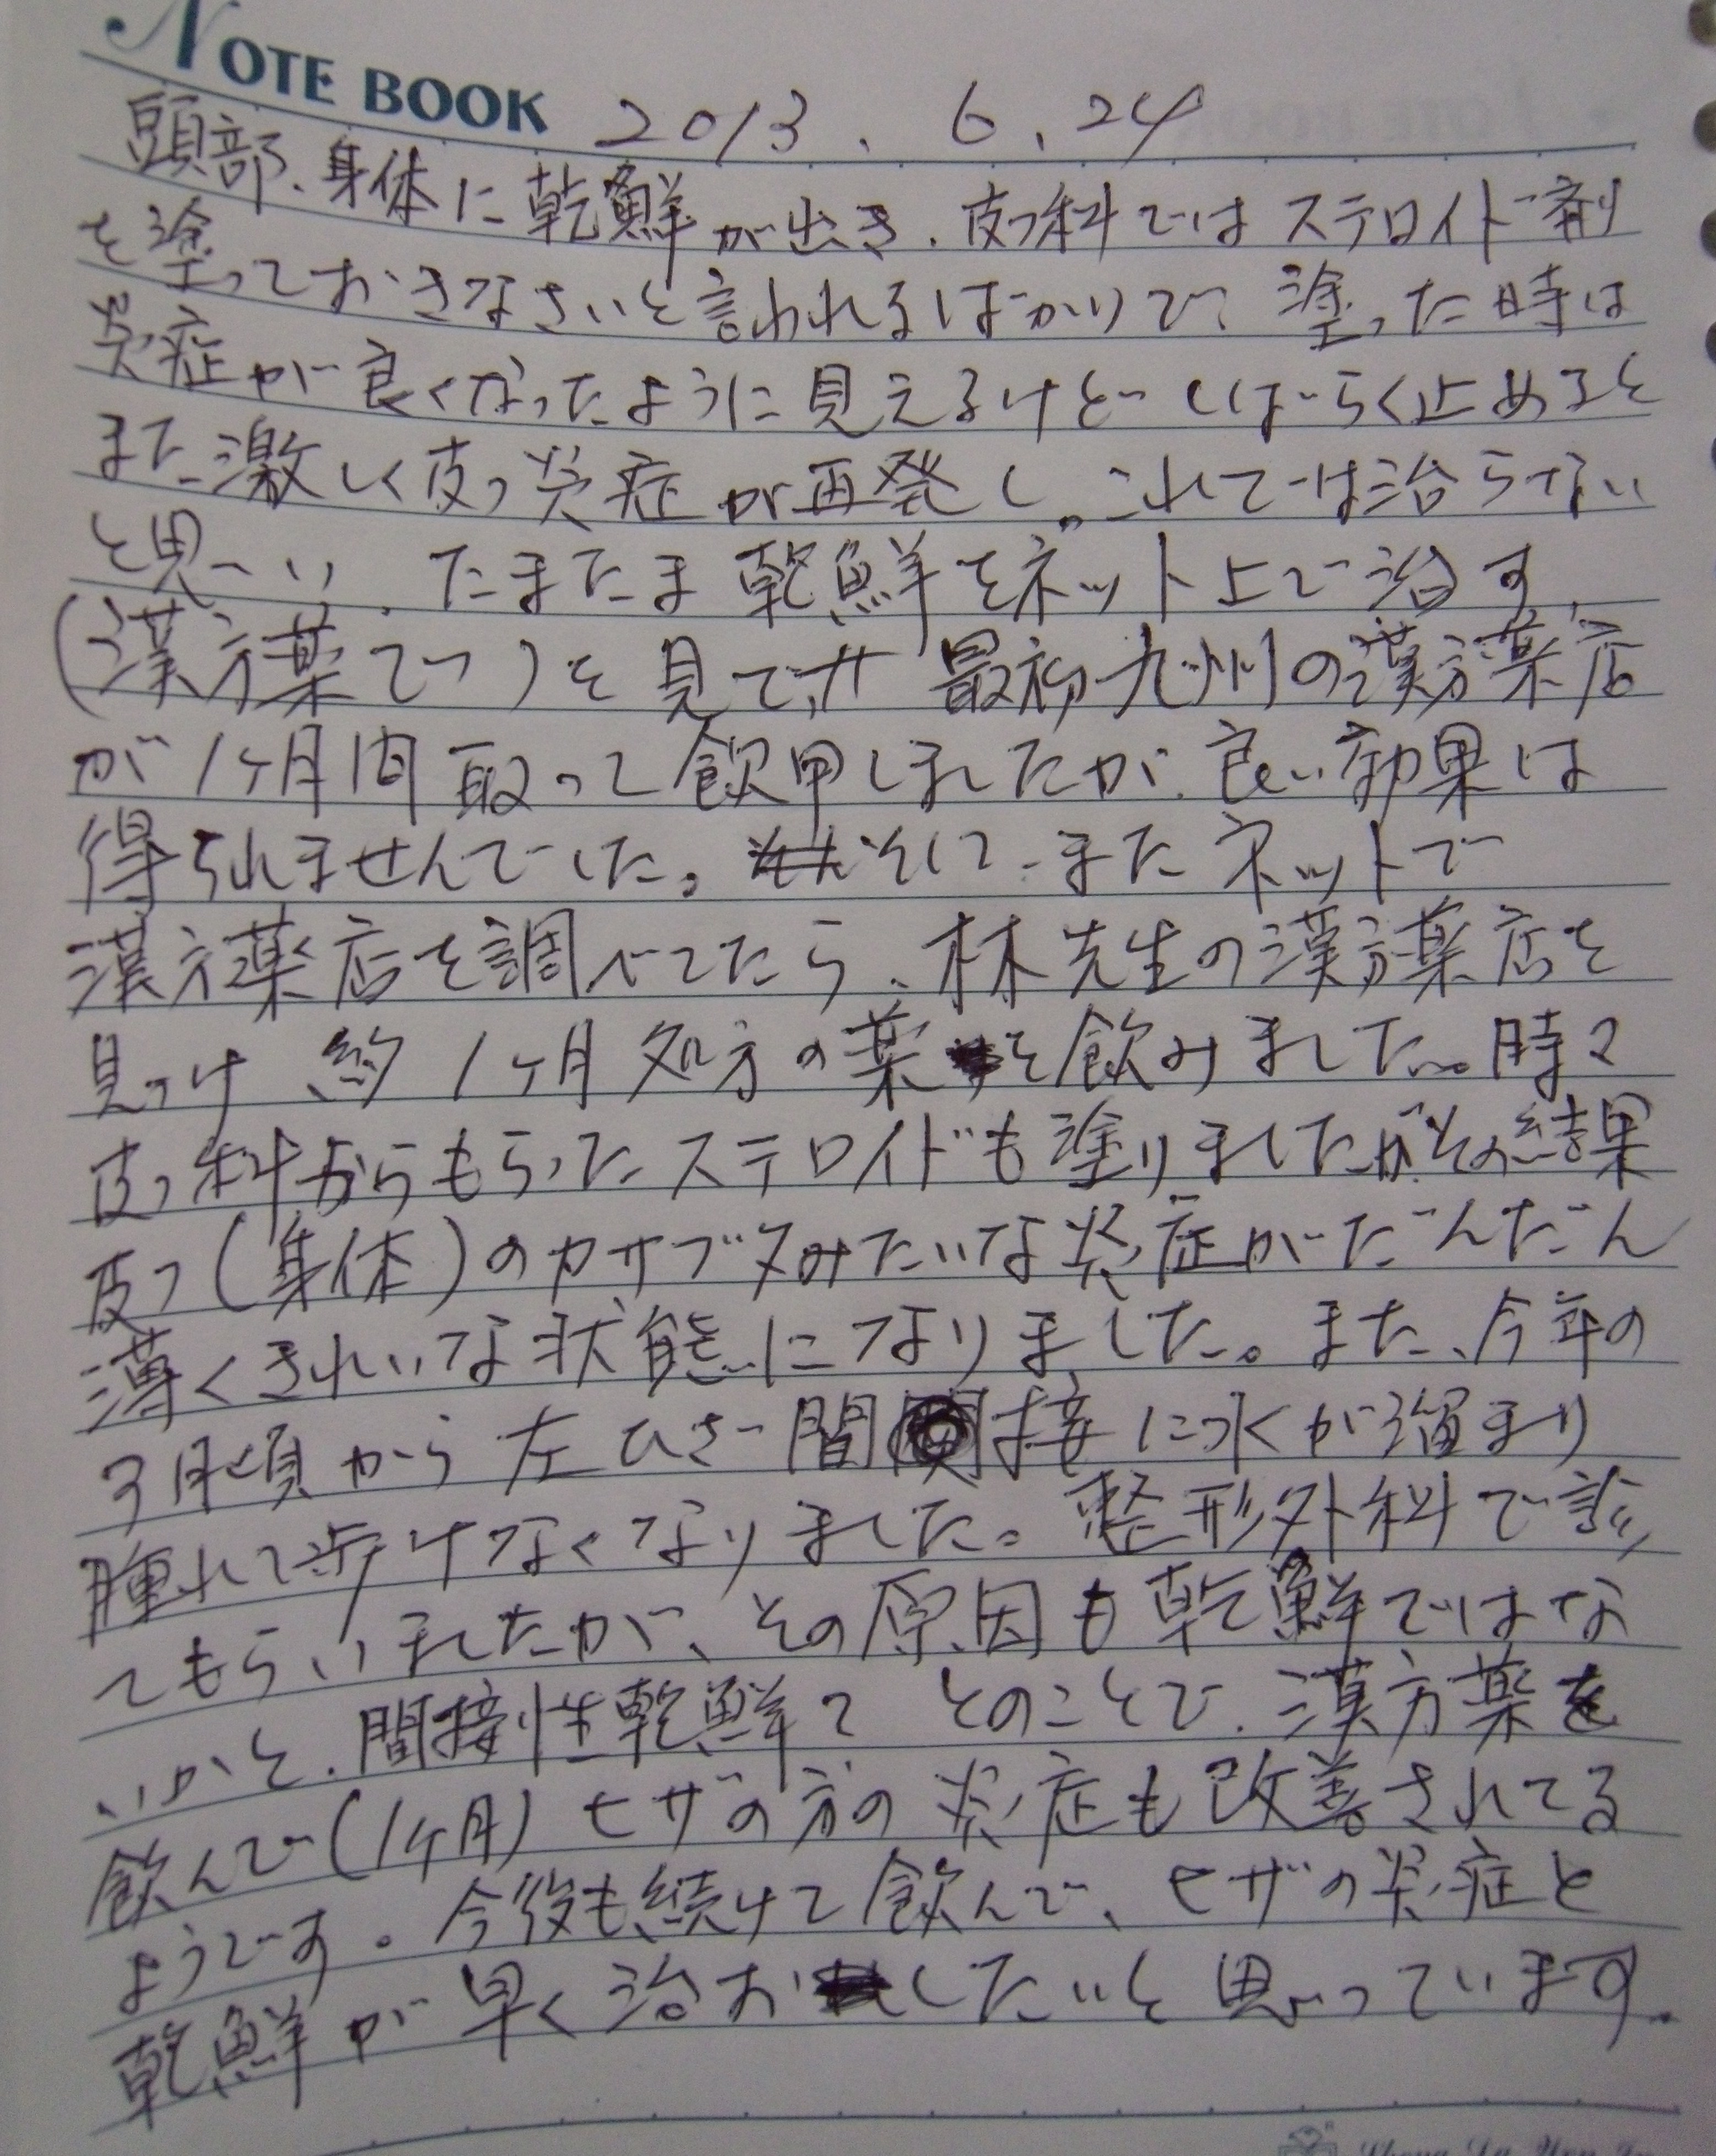 NOTE BOOK 2013. 6. 24
頭部、身体に乾鮮が出き、皮フ科ではステロイド剤
を塗っておきなさいと言われるばかりで、塗った時は
炎症が良くなったように見えるけど しばらく止めると
また激しく皮フ炎症が再発し、これでは治らない
と思い、たまたま乾鮮をネット上で治す
(漢方薬で)を見て、 最初九州の漢方薬店
が1ヶ月間取って飲用しましたが、良い効果は
得られませんでした。 そして、またネットで
漢方薬店を調べてたら、林先生の漢方薬店を
見つけ 約1ヶ月処方の薬を飲みました。時々
皮フ科からもらったステロイドも塗りましたが、その結果
皮フ(身体)のカサブタみたいな炎症がだんだん
薄くきれいな状態になりました。また、今年の
3月頃から左ひざ間接に水が溜まり
腫れて歩けなくなりました。整形外科で診
てもらいましたが、その原因も乾鮮ではな
いかと、間接性乾鮮? とのことで、漢方薬を
飲んで(1ヶ月)ヒザの方の炎症も改善されてる
ようです。今後も続けて飲んで、ヒザの炎症と
乾鮮が早く治おしたいと思っています。